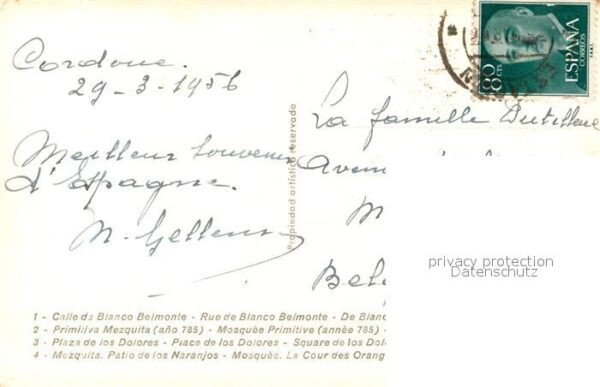 Cordoue.
29-3-1956
Meilleur souvenir
d'Espagne.
La famille
Aven
M
Bel
Propiedad artística reservada
80
CTS
ESPAÑA
CORREOS
privacy protection
Datenschutz
1 - Calle de Blanco Belmonte - Rue de Blanco Belmonte - De Blanc
2 - Primitiva Mezquita (año 785) - Mosquèe Primitive (annèe 785) -
3 - Plaza de los Dolores - Place de los Dolores - Square de los Dol
4 - Mezquita. Patio de los Naranjos - Mosquèe. La Cour des Orang